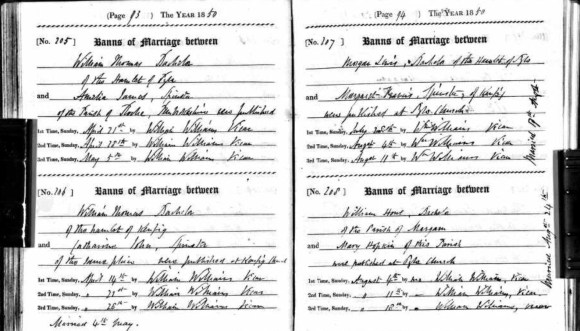 (Page 93 The YEAR 1850
[No. 205] Banns of Marriage between
William Thomas Bachelor
of the Hamlet of Pyle
and Amelia James, Spinster
of the Parish of were published
1st Time, Sunday, April 21st by William Williams Vicar
2nd Time, Sunday, April 28th by William Williams Vicar
3rd Time, Sunday, May 5th by William Williams Vicar
[No. 206] Banns of Marriage between
William Thomas Bachelor
of the hamlet of Kenfig
and Catharine John, Spinster
of the same place were published at Kenfig
1st Time, Sunday, April 14th by William Williams Vicar
2nd Time, Sunday, " 21st by William Williams Vicar
3rd Time, Sunday, " 28th by William Williams Vicar
Married 4th May.
(Page 94 The YEAR 1850
[No. 207] Banns of Marriage between
Morgan Lewis, Bachelor of the Hamlet of Pyle
and Margaret Spinster, of Kenfig
were published at Pyle Church
1st Time, Sunday, July 28th by Wm Williams Vicar
2nd Time, Sunday, August 4th by Wm Williams Vicar
3rd Time, Sunday, August 11th by Wm Williams Vicar
Married
[No. 208] Banns of Marriage between
William Bachelor
of the Parish of Margam
and Mary Hopkin of this Parish
were published at Pyle Church
1st Time, Sunday, August 4th by me William Williams, Vicar
2nd Time, Sunday, " 11th by " William Williams, Vicar
3rd Time, Sunday, " 18th by " William Williams, Vicar
Married Augt 24th